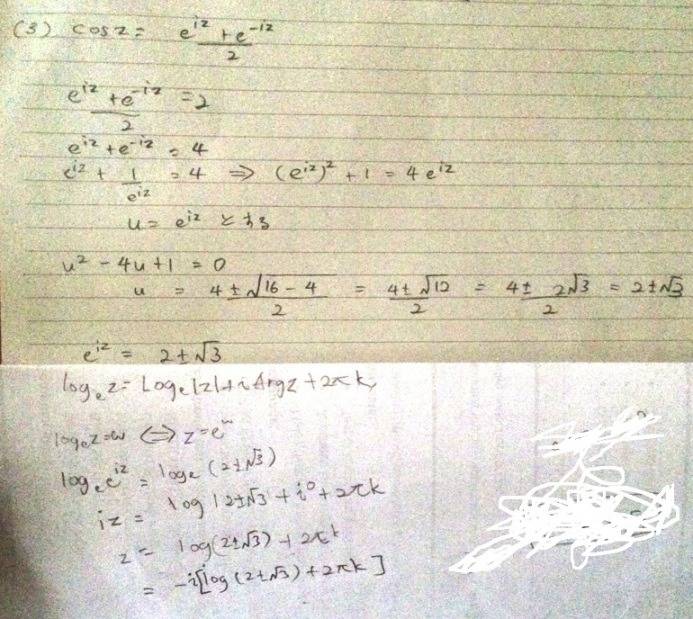 (3) cos z = (e^{iz} + e^{-iz})/2
(e^{iz} + e^{-iz})/2 = 2
e^{iz} + e^{-iz} = 4
e^{iz} + 1/e^{iz} = 4 ⇒ (e^{iz})^2 + 1 = 4e^{iz}
u = e^{iz} とする
u^2 - 4u + 1 = 0
u = (4 ± √16 - 4)/2 = (4 ± √12)/2 = (4 ± 2√3)/2 = 2 ± √3
e^{iz} = 2 ± √3
log_e z = Log_e |z| + i Arg z + 2πk,
log_e z = w ⇔ z = e^w
log_e e^{iz} = log_e (2 ± √3)
iz = log |2 ± √3 + i0 + 2πk
z = log(2 ± √3) + 2πk
= -i[log (2 ± √3) + 2πk]